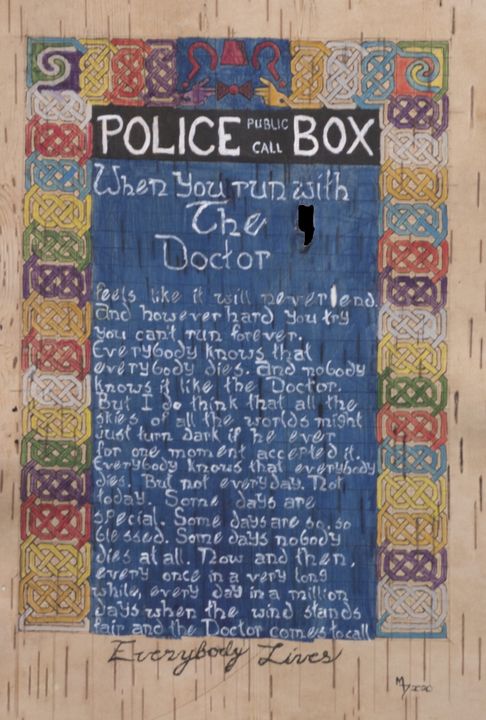 POLICE PUBLIC CALL BOX
When You run with
The
Doctor
feels like it will never end.
And however hard you try
you can't run forever.
Everybody knows that
everybody dies. and nobody
knows it like the Doctor.
But I do think that all the
skies of all the worlds might
just turn dark if he ever
for one moment accepted it.
Everybody knows that everybody
dies. But not every day. Not
today. Some days are
special. Some days are so, so
blessed. Some days nobody
dies at all. Now and then,
every once in a very long
while, every day in a million
days when the wind stands
fair and the Doctor comes to call
Everybody Lives
2020